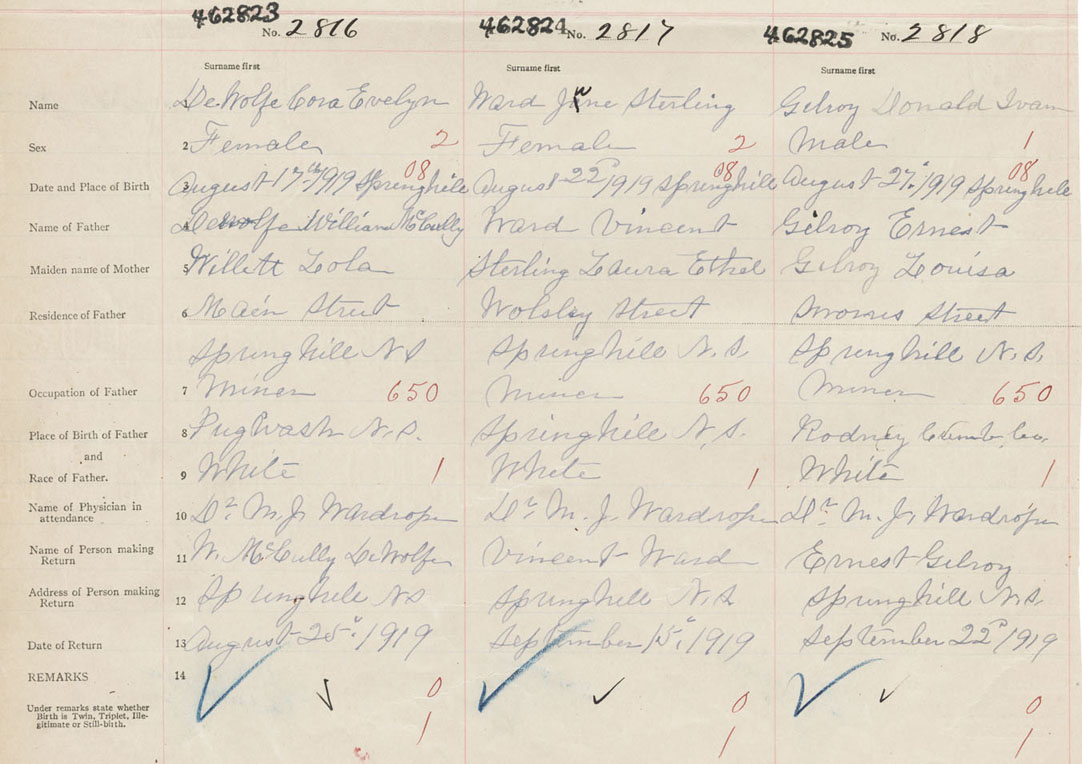 462823 462824 462825
No. 2816 No. 2817 No. 2818
Surname first Surname first Surname first
Name 1 DeWolfe Cora Evelyn Ward Sterling Gilroy Donald Ivan
Sex 2 Female 2 Female 2 Male 1
08 08 08
Date and Place of Birth 3 August 17th 1919 Springhill August 22d 1919 Springhill August 27" 1919 Springhill
Name of Father 4 DeWolfe William McCully Ward Vincent Gilroy Ernest
Maiden name of Mother 5 Willett Lola Sterling Laura Ethel Gilroy Louisa
Residence of Father 6 Main Street Wolsley Street Street
Springhill NS Springhill N.S. Springhill N.S.
Occupation of Father 7 Miner 650 Miner 650 Miner 650
Place of Birth of Father 8 Pugwash N.S. Springhill N.S. Rodney Cumb. Co.
and
Race of Father. 9 White 1 White 1 White 1
Name of Physician in
attendance 10 Dr. M. J. Wardrope Dr. M. J. Wardrope Dr. M. J. Wardrope
Name of Person making
Return 11 W. McCully DeWolfe Vincent Ward Ernest Gilroy
Address of Person making
Return 12 Springhill NS Springhill N.S. Springhill N.S.
Date of Return 13 August 25". 1919 September 15". 1919 September 22d 1919
REMARKS 14
0 0 0
Under remarks state whether
Birth is Twin, Triplet, Ille-
gitimate or Still-birth.
1 1 1